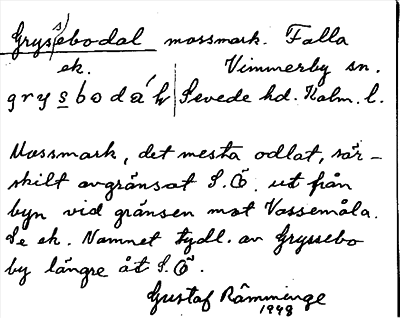 Grys(s)ebodal mossmark. Falla
ek. Vimmerby sn.
g r y s b o d a´ h Sevede hd. Kalm. l.
Mossmark, det mesta odlat, sär-
skilt avgränsat S.Ö. ut från
byn vid gränsen mot Vassemåla.
Se ek. Namnet tydl. av Gryssebo
by längre åt S.Ö.
Gustaf Rämminge
1948